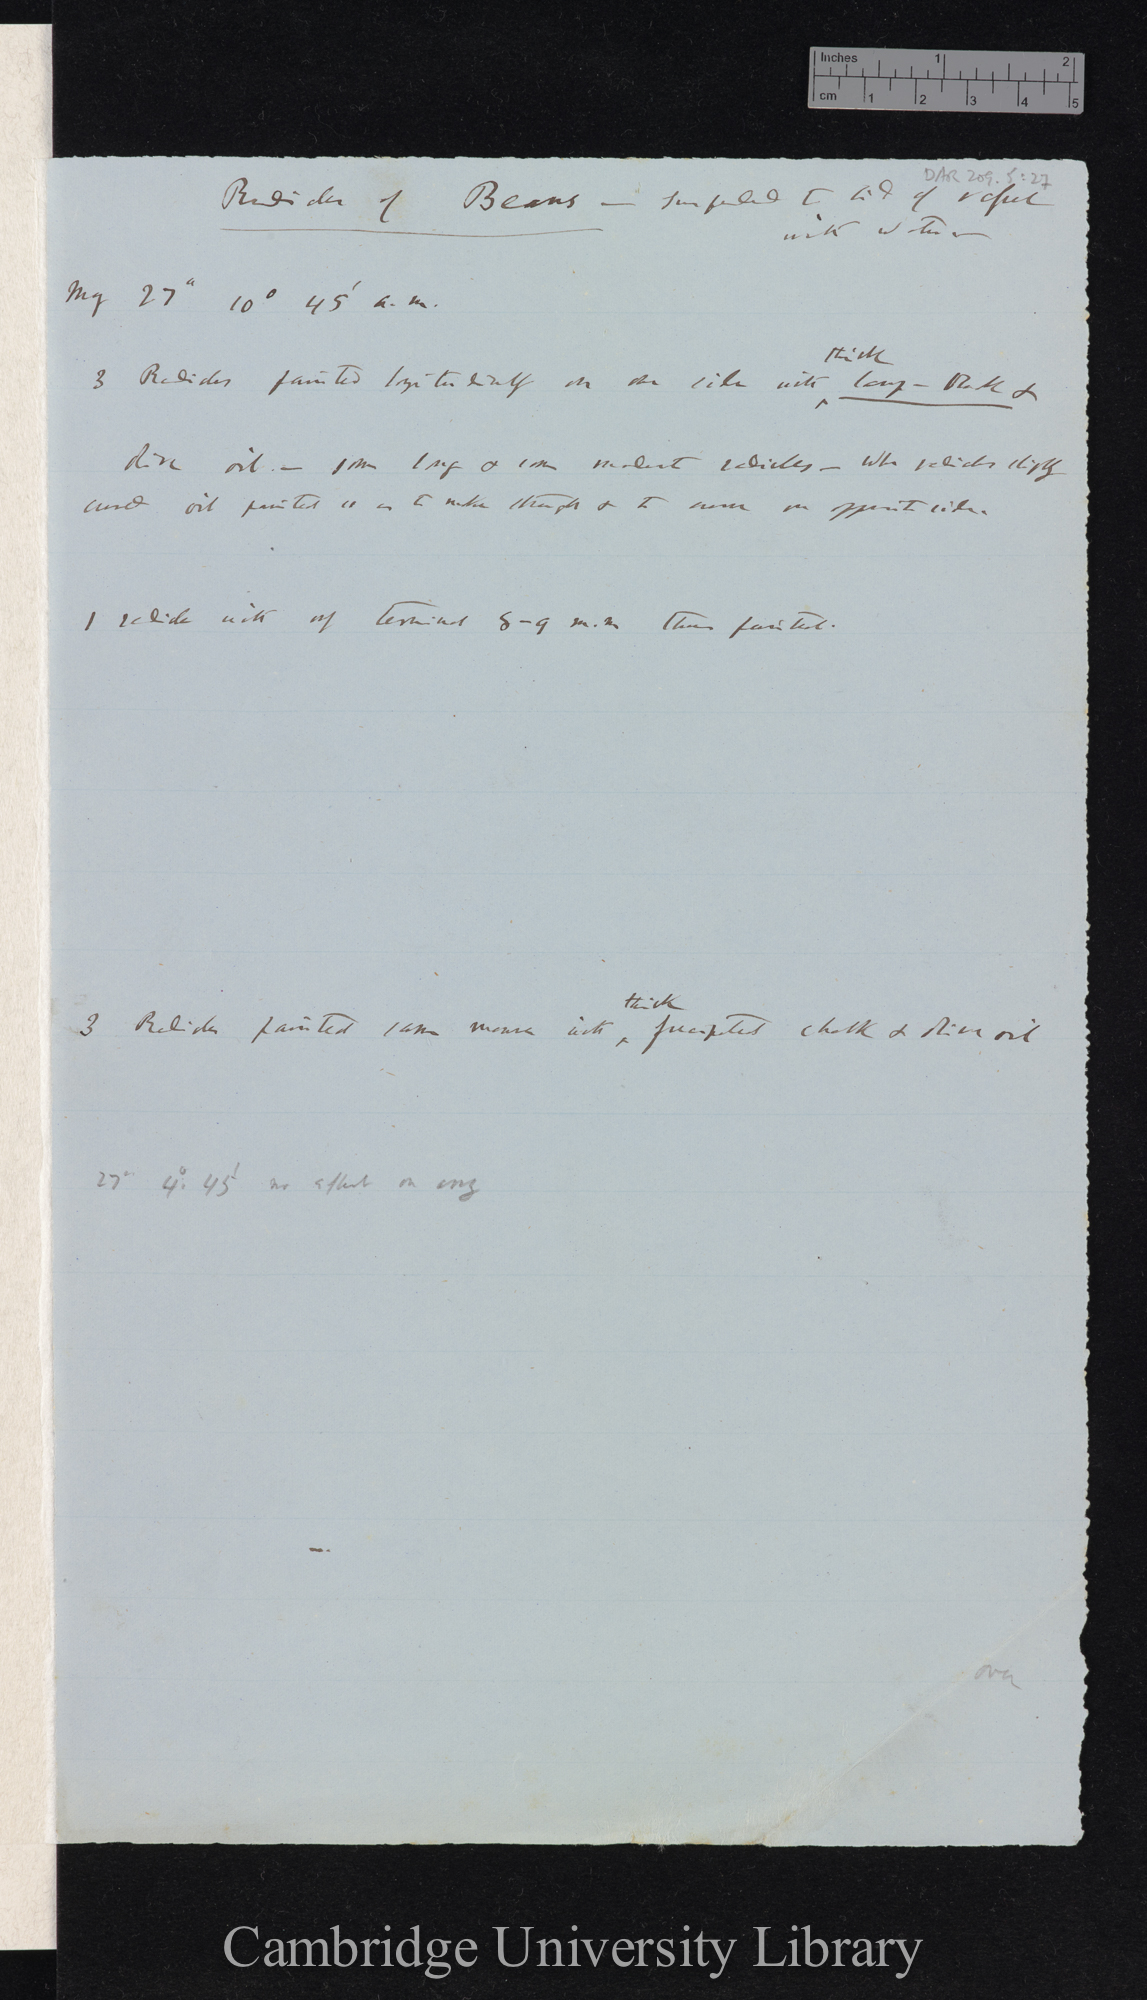 Inches 1 2
cm 1 2 3 4 5
DAR 209.5:27
Radicles of Beans — suspended to lid of vessel
with water
May 27th 10° 45' a.m.
thick
3 Radicles painted longitudinally on one side with ^ lamp-black &
olive oil. — some long & some moderate radicles — When radicles slightly
curved oil painted so as to make straight & to curve on opposite side.
1 radicle with only terminal 8-9 m.m thus painted.
thick
3 Radicles painted same manner with ^ precipitated chalk & olive oil
27th 4°. 45' no effect on any
over
Cambridge University Library